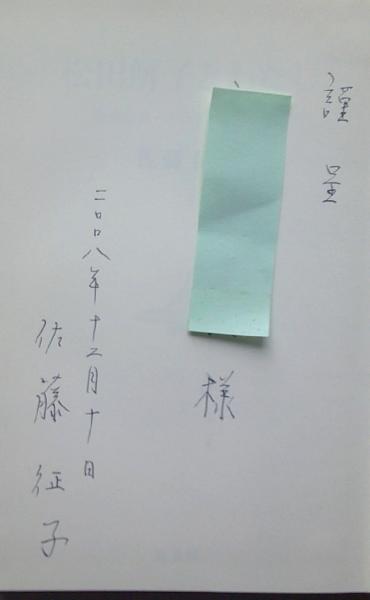 謹呈
様
二〇〇八年十二月十日
佐藤征子